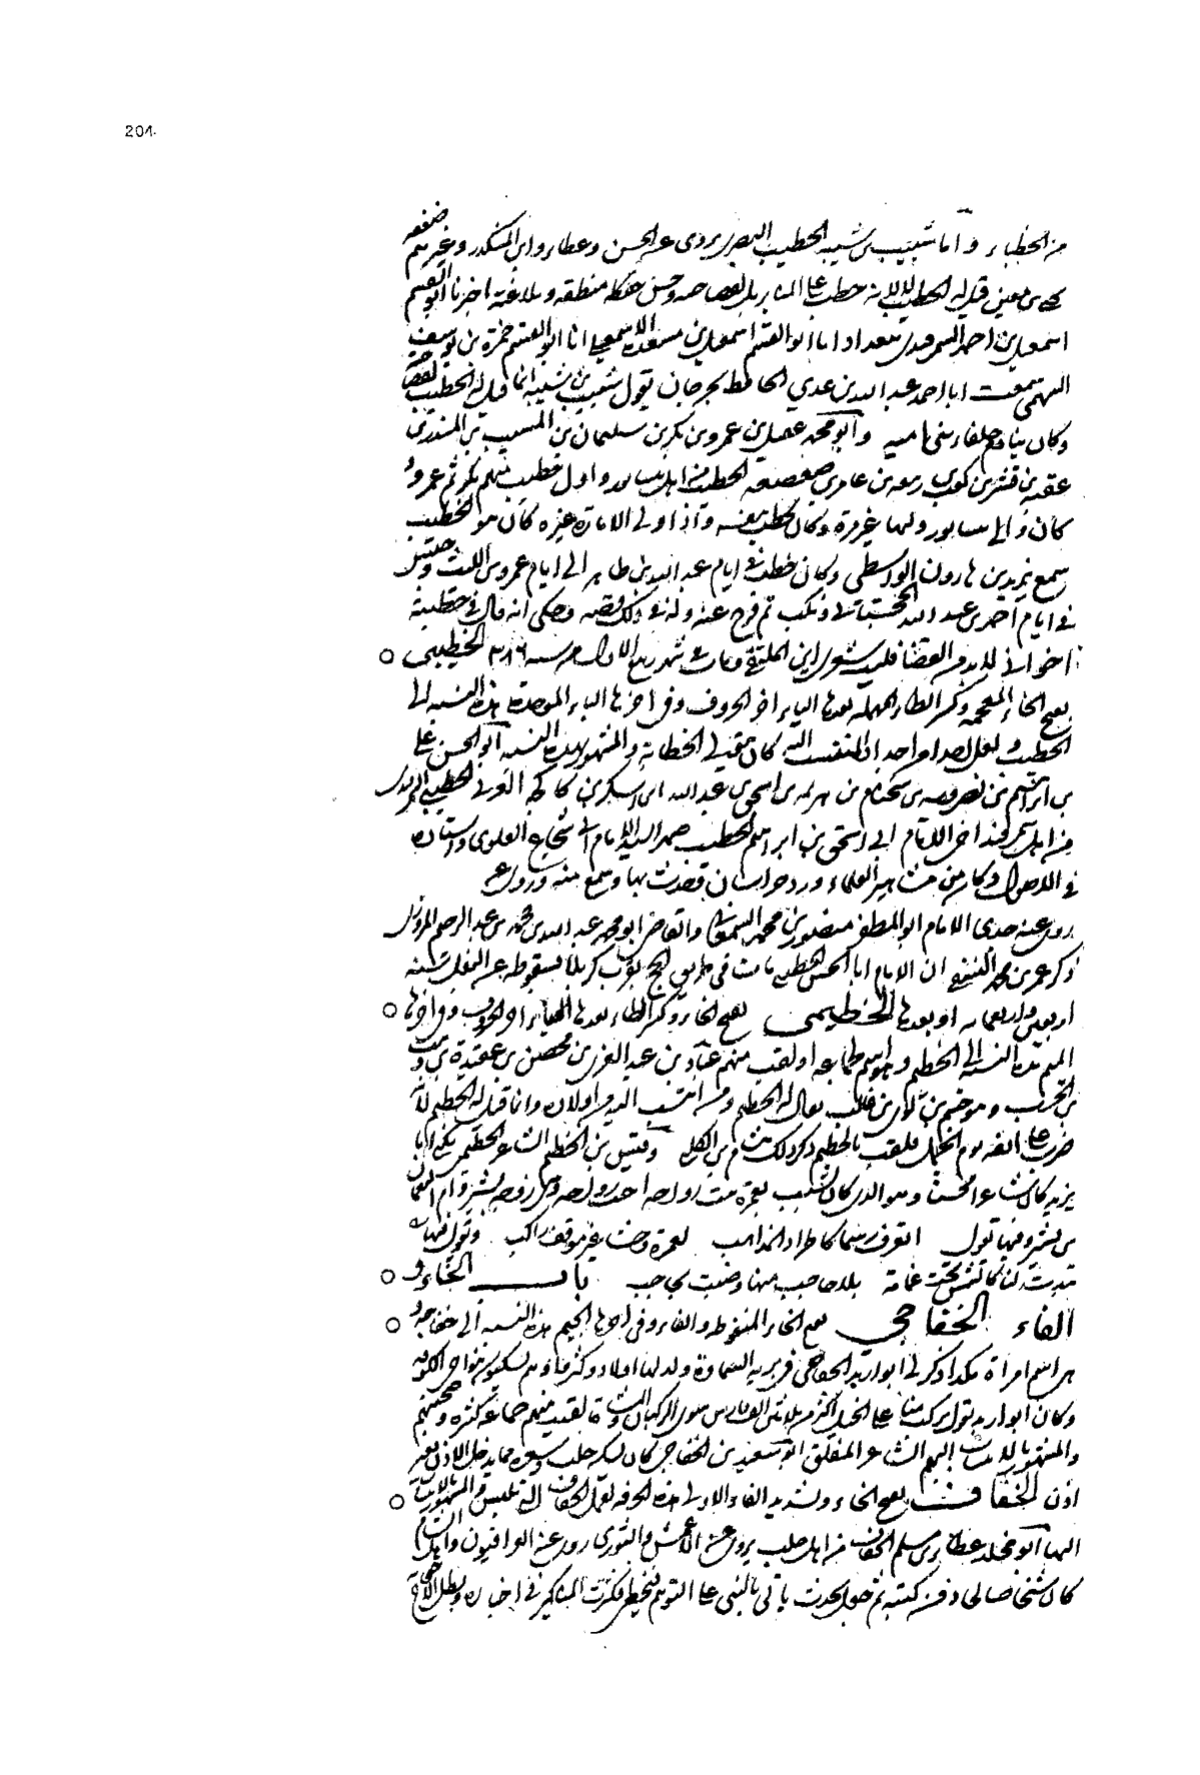 204
من الخطباء وأما شبيب بن شيبة الخطيب البصري روى عن الحسن وعطاء وابن المنكدر وغيرهم ضعفه
يحيى بن معين قيل له الخطيب لانه خطب على المنابر بالفصاحة وحسن منطقه وبلاغة اخبرنا ابو القسم
اسمعيل بن احمد السمرقندي ببغداد انا ابو القسم اسمعيل بن مسعدة الاسمعيلي انا ابو القسم حمزة بن يوسف
السهمي سمعت ابا احمد عبد الله بن عدي الحافظ بجرجان يقول شبيب بن شيبة انما قيل له الخطيب لفصاحته
وكان ينادم خلفاء بني امية وابو محمد عقيل بن عمرو بن بكر بن سليمان بن المسيب بن المنذر بن
عقبة بن قشير بن كعب بن ربيعة بن عامر بن صعصعة الخطيب من اهل نيسابور واول خطيب منهم بكر ثم عمرو
كان والي نيسابور وليها غير مرة وكان يخطب بنفسه واذا ولي الامارة غيره كان هو الخطيب
سمع يزيد بن هارون الواسطي وكان خطب في ايام عبد الله بن طاهر الى ايام عمرو بن الليث وحبس
في ايام احمد بن عبد الله الخجستاني ونكب ثم فرج عنه وله في ذلك قصة وحكى انه قال في خطبته
الخطيبي
بفتح الخاء المعجمة وكسر الطاء المهملة بعدها الياء اخر الحروف وفي اخرها الباء الموحدة هذه النسبة الى
الخطيب ولعل احد اجداد المنتسب اليه كان يتولى الخطابة والمشهور بهذه النسبة ابو الحسن علي
بن ابرهيم بن نصرويه بن سختام بن هرثمة بن اسحق بن عبد الله بن اسكر بن كاكجة العربي الخطيبي
من اهل سمرقند اخو الامام ابي اسحق بن ابراهيم الخطيب صهر السيد الامام ابي شجاع العلوي واستاذه
في الاصول وكان من مشاهير العلماء ورد خراسان وحدث بها وسمع منه
روى عنه جدي الامام ابو المظفر منصور بن محمد السمعاني والقاضي ابو محمد عبد الله بن محمد بن عبد الرحيم المروزي
ذكر عمر بن محمد النسفي ان الامام ابا الحسن الخطيبي مات في طريق الحج بقرب كربلا بسقوطه عن المحمل سنة
اربعين واربعمائة او بعدها الخطيمي بفتح الخاء وكسر الطاء بعدها الياء اخر الحروف وفي اخرها
الميم هذه النسبة الى الخطيم وهو اسم لجماعة او لقب منهم عباد بن عبد العزيز بن محصن بن عقيدة بن وهب
بن الحرث وهو جشم بن لؤي بن غالب يقال له الخطيم ومن انتسب اليه من اولاده وانما قيل له الخطيم لانه
ضرب على انفه يوم الجمل فلقب بالخطيم ذكر ذلك هشام بن الكلبي وقيس بن الخطيم الشاعر الخطيمي يكنى ابا
يزيد كان شاعرا محسنا وهو الذي كان يشبب بعمرة بنت رواحة اخت عبد الله بن رواحة وهي زوجة بشير وام النعمان
بن بشير وفيها يقول اتعرف رسما كاطراد المذاهب لعمرة وحشا غير موقف راكب ويقول فيها
تبدت لنا كالشمس تحت غمامة بدا حاجب منها وضنت بحاجب باب الخاء و
الفاء الخفاجي بفتح الخاء المنقوطة والفاء وفي اخرها الجيم هذه النسبة الى خفاجة
هو اسم امراة هكذا ذكر لي ابو ازيد الخفاجي في برية السماوة ولد لها اولاد وكثروا وهم يسكنون بنواحي الكوفة
وكان ابو ازيد يقول يركب منا على الخيل اكثر من ثلاثين الف فارس سوى الركبان والمشاة لقيت منهم جماعة كثيرة وصحبتهم
والمشهور بالانتساب اليهم الشاعر المفلق ابو سعيد بن الخفاجي كان يسكن حلب وشعره مما يدخل الاذن بغير
اذن الخفاف بفتح الخاء وتشديد الفاء الاولى هذه الحرفة لعمل الخفاف التي تلبس والمشهور بالانتساب
اليها ابو مخلد عطاء بن مسلم الخفاف من اهل حلب يروي عن الاعمش والثوري روى عنه العراقيون واهل الشام
كان شيخا صالحا دفن كتبه ثم جعل يحدث ياتي بالشيء على التوهم فيخطئ فكثرت المناكير في اخباره وبطل الاحتجاج